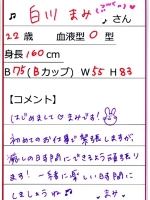 白川 まみ さん
22歳 血液型 O 型
身長160cm
B75(Bカップ) W55 H83
【コメント】
はじめまして♡まみです!
初めてのお仕事で緊張しますが、
癒しの時間にできるよう頑張り
ます! 一緒に楽しい時間に
しましょうね♪ ～まみ～